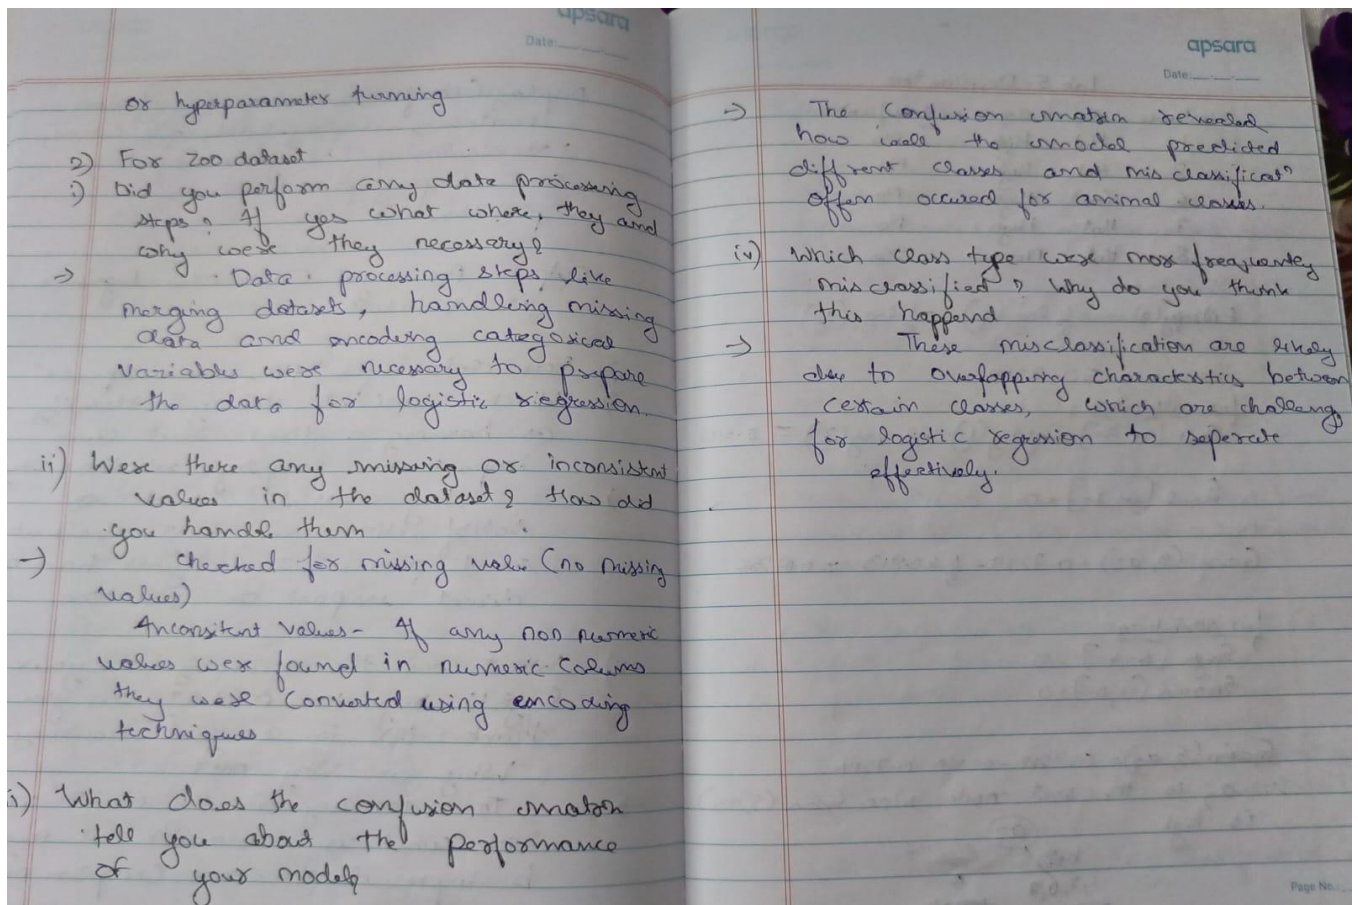 apsara
Date:
or hyperparameter turning
2) For zoo dataset
i) Did you perform any data processing
steps? If yes what where, they and
why were they necessary?
→ Data processing steps like
merging datasets, handling missing
data and encoding categorical
variables were necessary to prepare
the data for logistic riegression.
ii) Were there any missing or inconsistent
values in the dataset? How did
you handle them
→ checked for missing value (no missing
values)
Inconsitent values - If any non numeric
values were found in numeric columns
they were converted using encoding
techniques
i) What does the confusion matrix
tell you about the performance
of your model?
apsara
Date:
→ The Confusion matrix revealed
how well the model predicted
different classes and misclassificatn
offen occured for animal classes.
iv) Which class type were mos frequentey
misclassified? Why do you think
this happend
→ These misclassification are likely
due to overfapping characterstics between
certain classes, which are challeng
for logistic regression to seperate
effectively.
Page No.